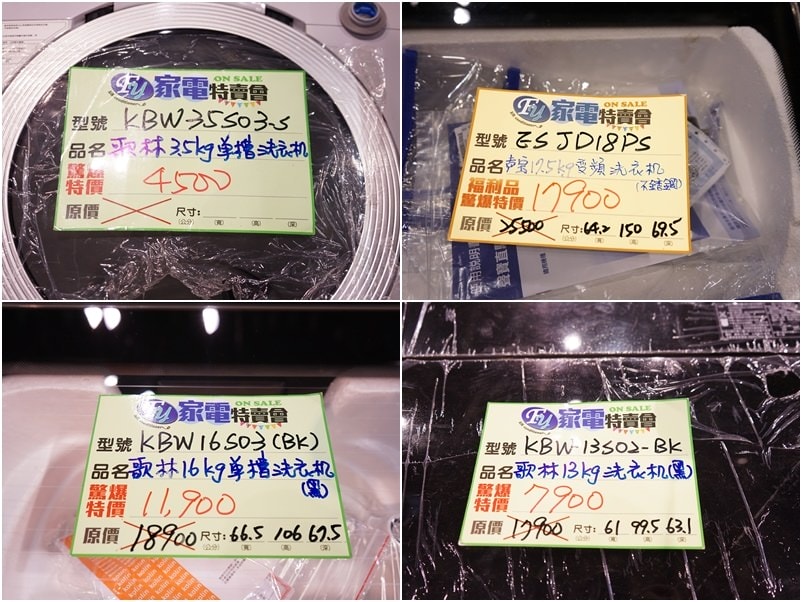 EY 家電特賣會 ON SALE
型號 KBW-35S03-S
品名 歌林3.5kg單槽洗衣机
驚爆特價 4500
原價 尺寸:
(公分) (寬) (高) (深)
EY 家電特賣會 ON SALE
型號 ES JD18PS
品名 17.5kg变頻洗衣机
(不銹鋼)
福利品驚爆特價 17900
原價 25500 尺寸: 64.2 150 69.5
(公分) (寬) (高) (深)
EY 家電特賣會 ON SALE
型號 KBW16S03(BK)
品名 歌林16kg單槽洗衣机
(黑)
驚爆特價 11,900
原價 18900 尺寸: 66.5 106 67.5
(公分) (寬) (高) (深)
EY 家電特賣會 ON SALE
型號 KBW-13S02-BK
品名 歌林13kg洗衣机(黑)
驚爆特價 7900
原價 17900 尺寸: 61 99.5 63.1
(公分) (寬) (高) (深)